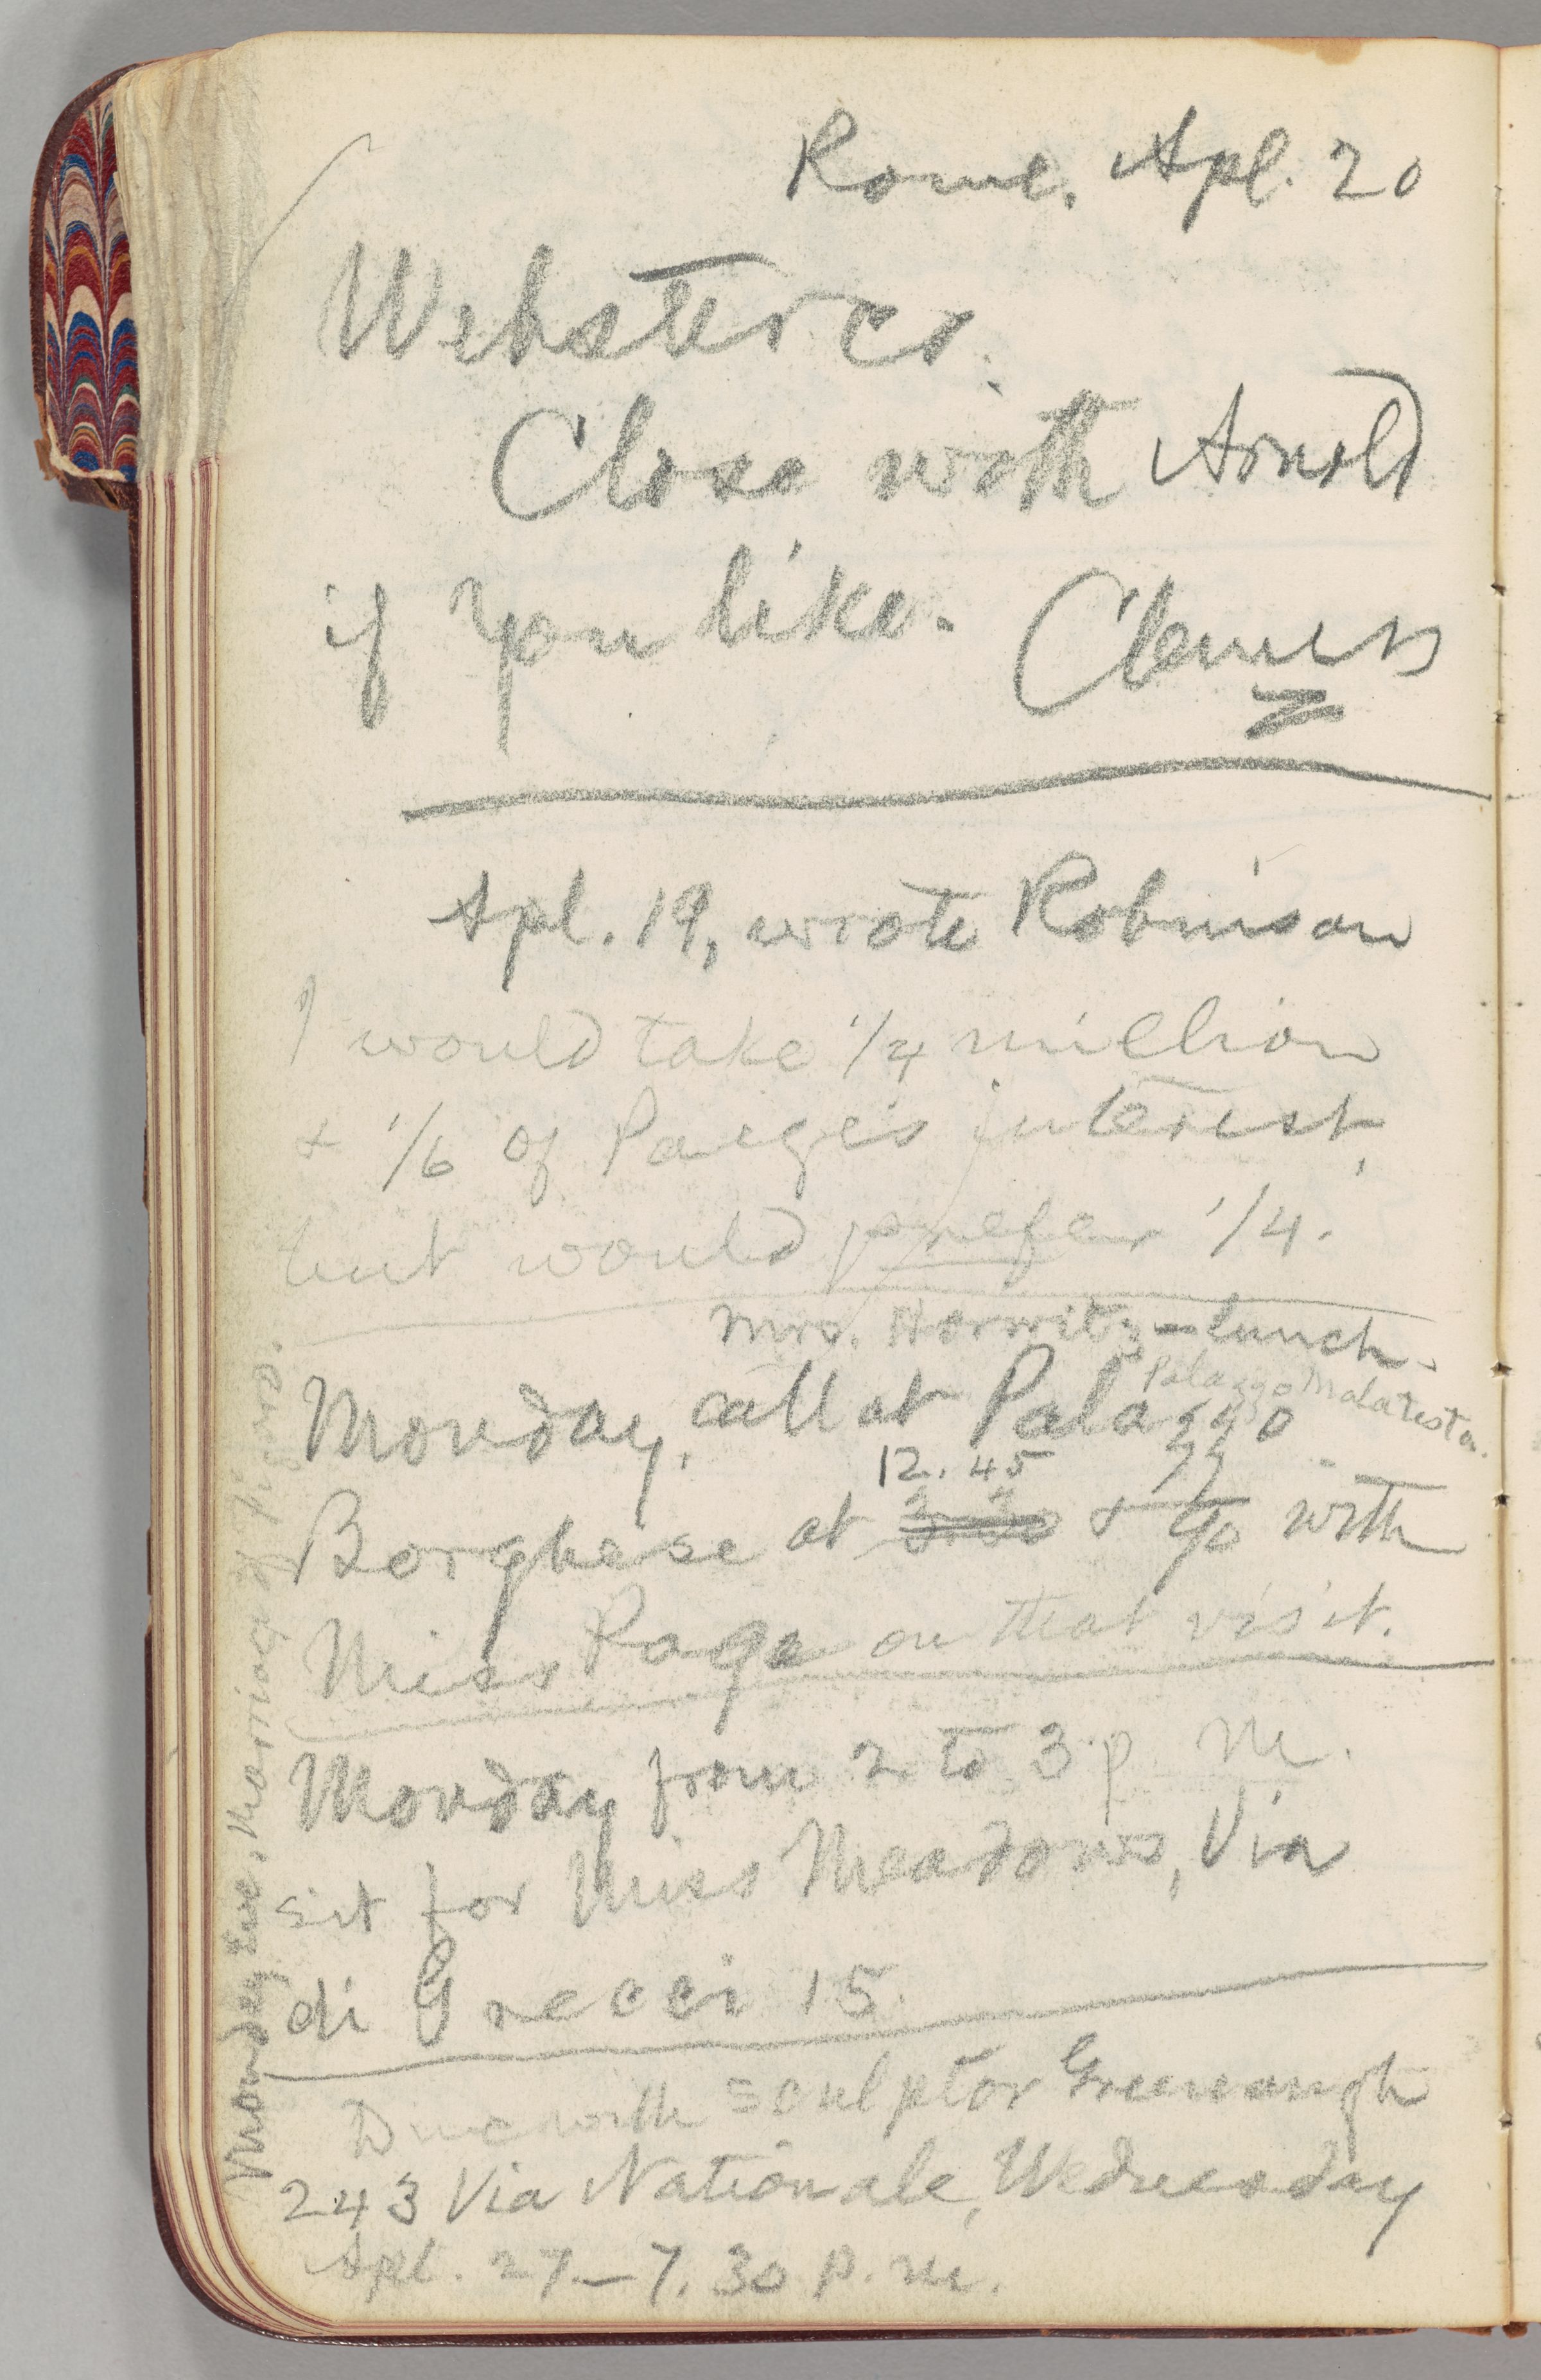 Rome, Apl. 20
Webster Co.
Close with Arnold
if you like. Clemens
Apl. 19, wrote Robinson
I would take 1/4 million
& 1/6 of Paige's interest,
but would prefer 1/4.
Mrs. Horwitz—lunch.
Palazzo Malatesta.
Monday, call at Palazzo
12.45
Borghese at 3.30 & go with
Miss Page on that visit.
Monday from 2 to 3 p. m.
sit for Miss Meadows, Via
di Grecci 15
Dine with sculptor Greenough
243 Via Nationale, Wednesday
Apl. 27—7.30 p. m.
Monday Eve, Marriage of Figaro.